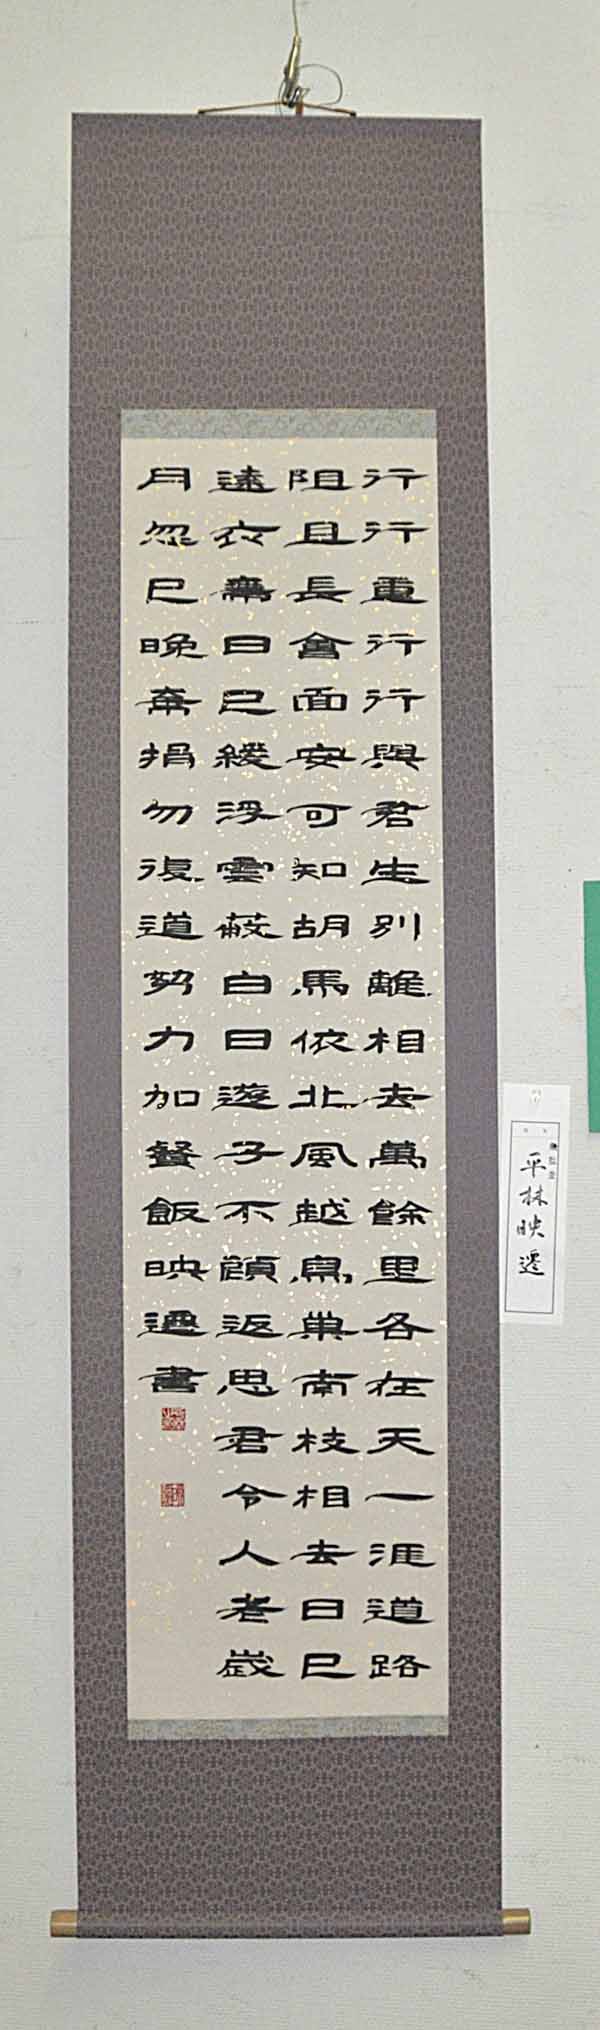 行行重行行與君生別離相去萬餘里各在天一涯道路
阻且長會面安可知胡馬依北風越鳥巢南枝相去日已
遠衣帶日已緩浮雲蔽白日遊子不顧返思君令人老歲
月忽已晚棄捐勿復道努力加餐飯映遷書
平林映遷